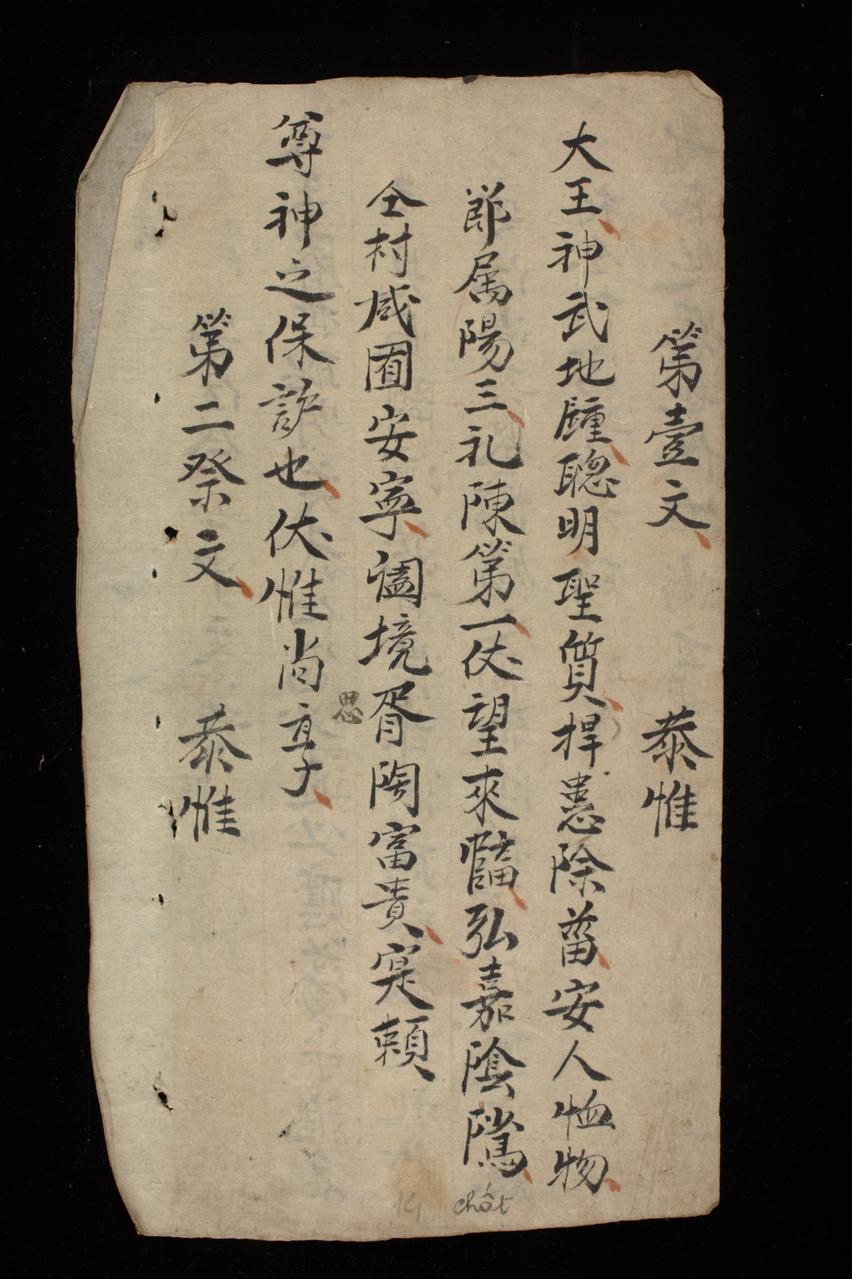 第壹文 恭惟
大王神武地腫聰明聖質捍患除菑安人恤物
節属陽三礼陳第一伏望來臨弘嘉陰隲
仝村咸囿安寧闔境胥陶富貴寔頼
思
尊神之保護也伏惟尚享
第二祭文 恭惟
chất